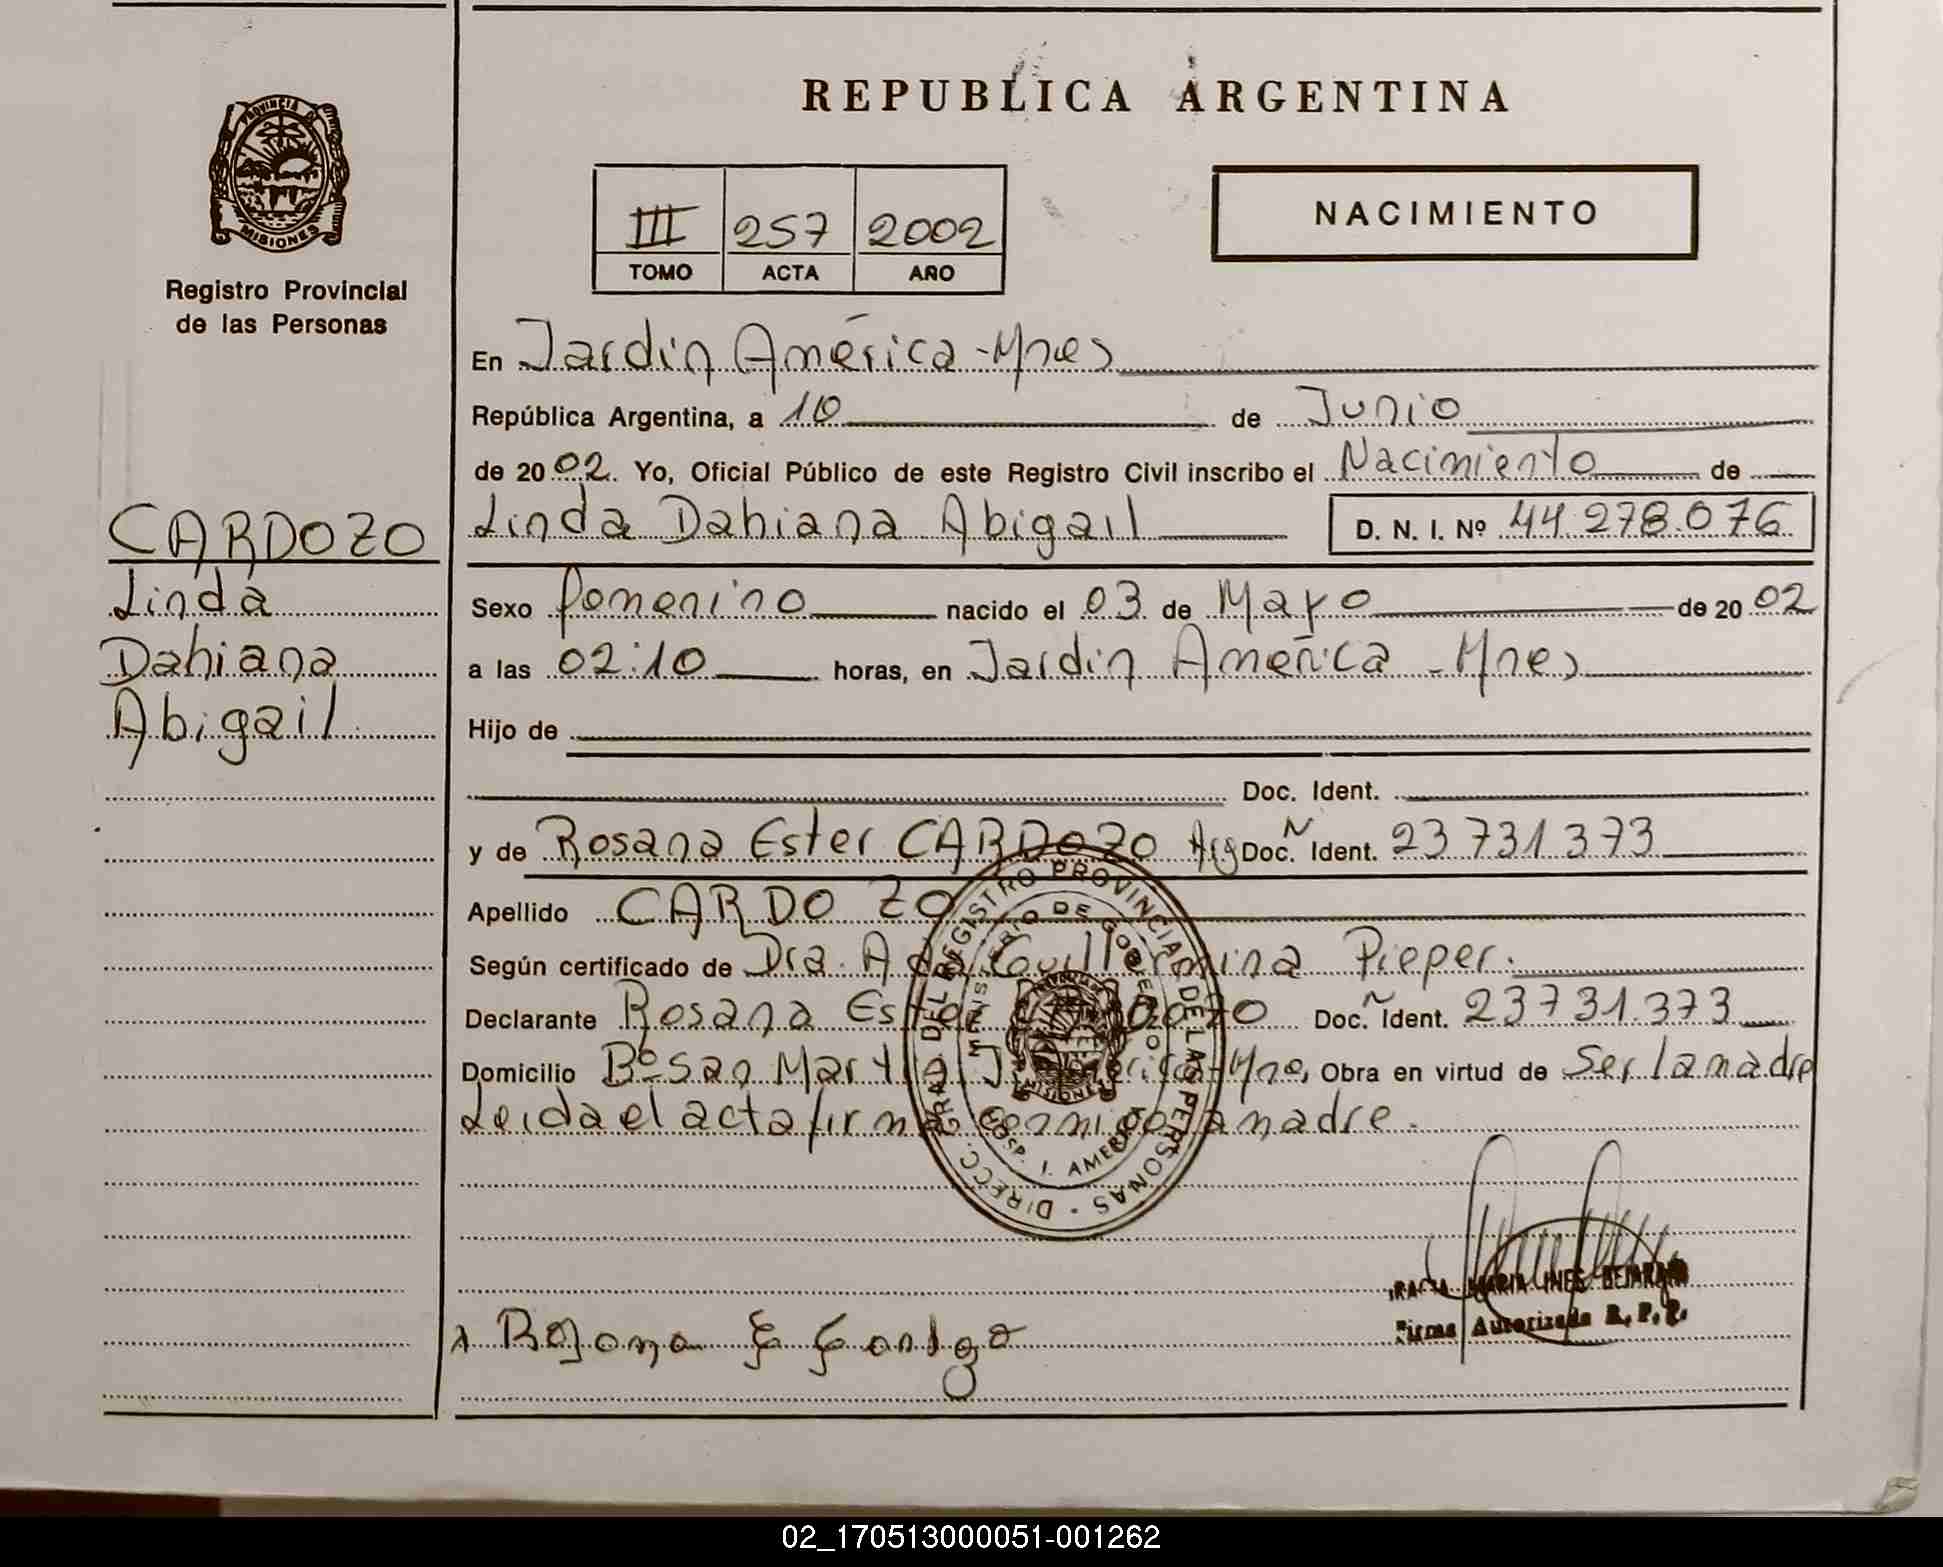 REPUBLICA ARGENTINA
PROVINCIA DE
MISIONES
Registro Provincial
de las Personas
III 257 2002
TOMO ACTA AÑO
NACIMIENTO
En Jardin América - Mnes
República Argentina, a 10 de Junio
de 20 02. Yo, Oficial Público de este Registro Civil inscribo el Nacimiento de
CARDOZO
Linda
Dahiana
Abigail
Linda Dahiana Abigail D. N. I. Nº 44.278.076
Sexo femenino nacido el 03 de Mayo de 20 02
a las 02:10 horas, en Jardin América - Mnes
Hijo de
Doc. Ident.
y de Rosana Ester CARDOZO Arg Doc. N Ident. 23 731 373
Apellido CARDOZO
Según certificado de Dra. Ada Guillermina Pieper.
Declarante Rosana Ester CARDOZO Doc. Ident. 23731.373
Domicilio Bº San Martin J. América - Mnes, Obra en virtud de Ser la madre
Leida el acta firma conmigo la madre.
DIRECC. GRAL. DEL REGISTRO PROVINCIAL DE LAS PERSONAS
MINISTERIO DE GOBIERNO
HOSP. J. AMERICA
MARIA INES BEJARANO
Firma Autorizada R. P. P.
Rosana E Cardozo
02_170513000051-001262